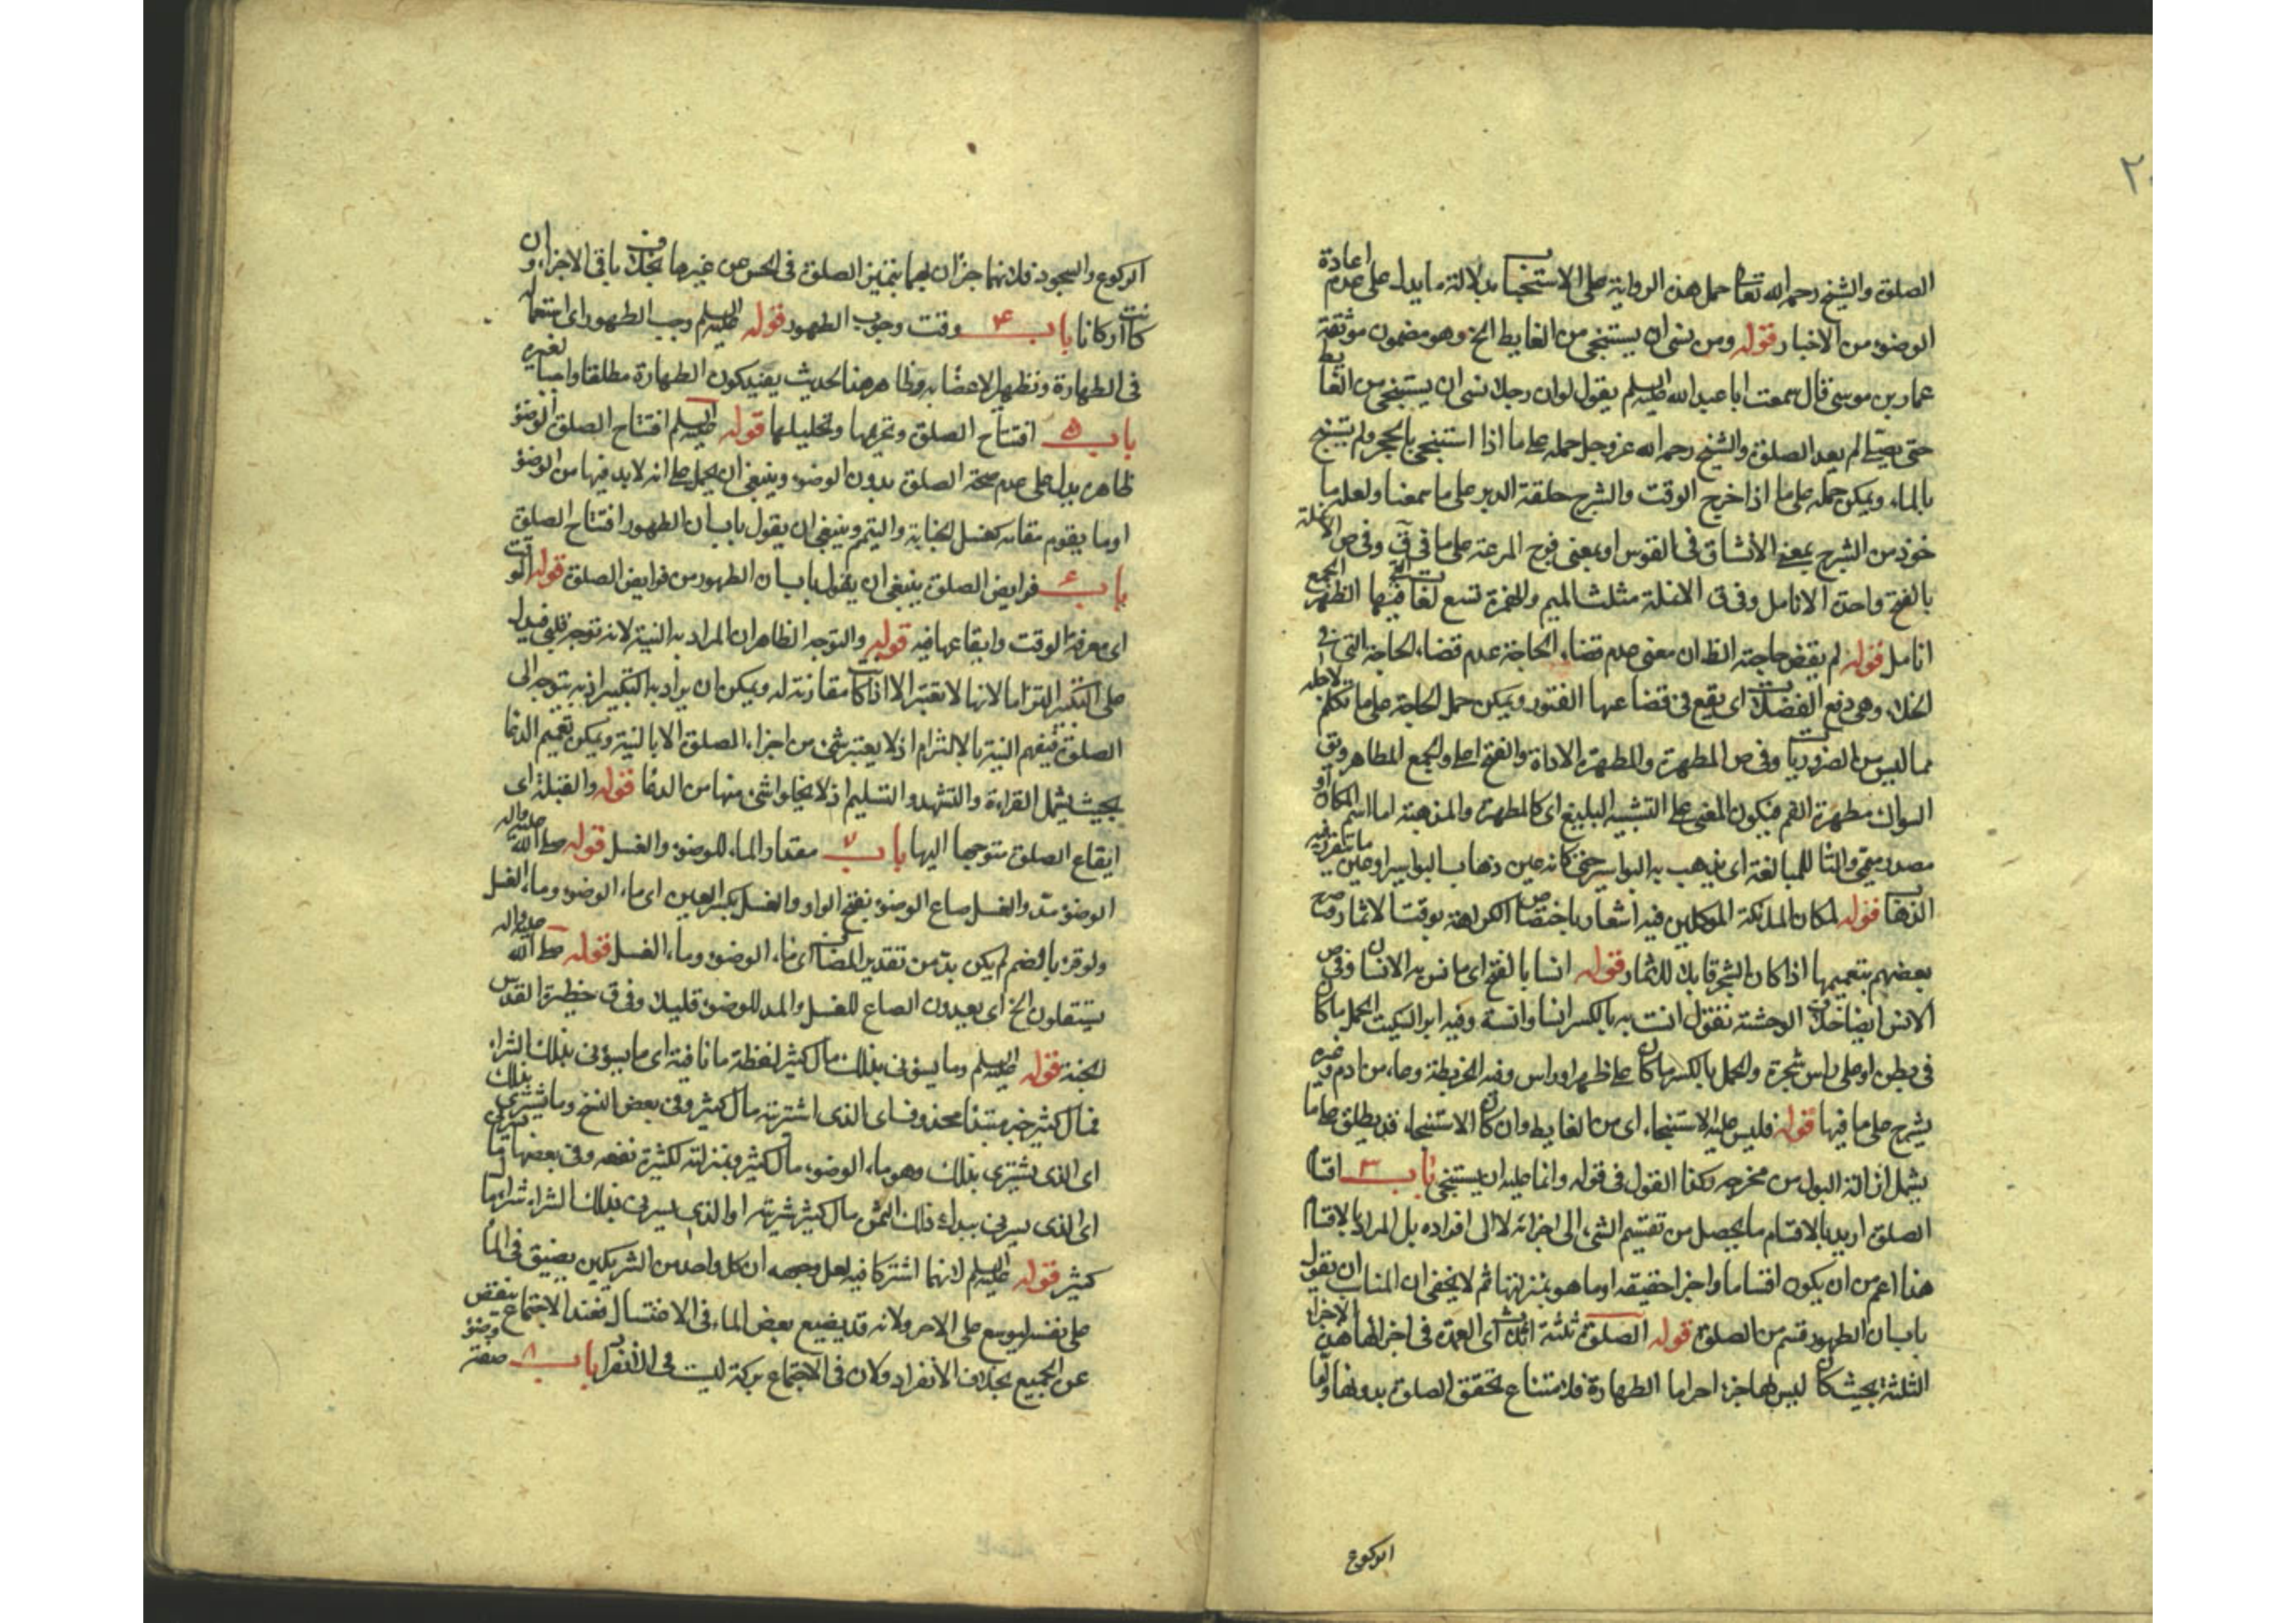 الصلوة والشيخ رحمه الله تعا حمل هذه الرواية على الاستحبا بدلالة ما يدل على عدم اعادة
الوضوء من الاخبار قوله ومن نسى ان يستنجى من الغايط الخ وهو مضمون موثقة
عمار بن موسى قال سمعت ابا عبد الله عليه السلم يقول لو ان رجلا نسى ان يستنجى من الغايط
حتى يصلى لم يعد الصلوة والشيخ رحمه الله عز وجل حمله على ما اذا استنجى بالحجر ولم يستنج
بالماء ويمكن حمله على ما اذا خرج الوقت والشرج حلقة الدبر على ما سمعنا ولعله ما
خوذ من الشرج بمعنى الانشاق فى القوس او بمعنى فرج المرءة على ما فى ق وفى ص الانملة
بالفتح واحدة الانامل وفى ق الانملة مثلث الميم والهمزة تسع لغا فيها الظفر الجمع
انامل قوله لم يقض حاجته الظ ان معنى عدم قضاء الحاجة عدم قضاء الحاجة التى فى
الخلاء وهى دفع الفضلات اى يقع فى قضائها الفتور ويمكن حمل الحاجة على ما تكلم لاجله
مما ليس من الضروريا وفى ص المطهرة والمطهرة الاداوة والفتح اعلى والجمع المطاهر ويق
السواك مطهرة الفم فيكون المعنى على التشبيه البليغ اى كالمطهرة والمذهبة اما اسم المكان او
مصدر ميمى والتا للمبالغة اى يذهب به البواسير حتى كانه عين ذهاب البواسير او عين ما يتقرر فيه
الذها قوله لمكان الملائكة الموكلين فيه اشعار باختصا الكراهة بوقت الاثمار وصرح
بعضهم بتعميمها اذا كان الشجر قابلا للاثمار قوله انسا بالفتح اى ما نس به الانسا وفى ص
الانس ايضا خلاف الوحشة تقول انست به بالكسر انسا وانسة وفيه ابن السكيت الحمل ما كان
فى بطن او على راس شجرة والحمل بالكسر ما كان على ظهر او راس وفيه الخريطة وعاء من ادم وغيره
يشرج على ما فيها قوله فليس عليه الاستنجاء اى من الغايط وان كان الاستنجاء قد يطلق على ما
يشمل ازالة البول من مخرجه وكذا القول فى قوله وانما عليه ان يستنجى باب ٣ اقسام
الصلوة اريد بالاقسام ما يحصل من تقسيم الشىء الى اجزائه لا الى افراده بل المراد بالاقسام
هنا اعم من ان يكون اقساما واجزا حقيقة او ما هو بمنزلتها ثم لا يخفى ان المناسب ان يقول
باب ان الطهور قسم من الصلوة قوله الصلوة ثلثة اثلاث اى العمدة فى اجزائها هذه الاجزاء
الثلثة بحيث كان ليس لها جزء اخر اما الطهارة فلامتناع تحقق الصلوة بدونها واما
الركوع
الركوع والسجود فلانهما جزان بهما يتميز الصلوة فى الحس عن غيرها بخلاف باقى الاجزاء وان
كانت اركانا باب ۴ وقت وجوب الطهور قوله عليه السلم وجب الطهور اى استعماله
فى الطهارة وتطهير الاعضا به وظاهر هذا الحديث يفيد كون الطهارة مطلقا واجبا لغيره
باب ۵ افتتاح الصلوة وتحريمها وتحليلها قوله عليه السلم افتتاح الصلوة الوضؤ
ظاهره يدل على عدم صحة الصلوة بدون الوضوء وينبغى ان يحمل على انه لا بد فيها من الوضؤ
او ما يقوم مقامه كغسل الجنابة والتيمم وينبغى ان يقول باب ان الطهور افتتاح الصلوة
باب ۶ فرايض الصلوة ينبغى ان يقول باب ان الطهور من فرايض الصلوة قوله الوقت
اى معرفة الوقت وايقاعها فيه قوله والتوجه الظاهر ان المراد به النية لانه توجه قلبى فيدل
على التكبير التزاما لانها لا تعتبر الا اذا كانت مقارنة له ويمكن ان يراد به التكبير اذ به يتوجه الى
الصلوة فيفهم النية بالالتزام اذ لا يعتبر شئ من اجزاء الصلوة الا بالنية ويمكن تعميم الدعا
بحيث يشمل القراءة والتشهد والتسليم اذ لا يخلو شئ منها من الدعا قوله والقبلة اى
ايقاع الصلوة متوجها اليها باب ٧ مقدار الماء للوضوء والغسل قوله صلى الله عليه واله
الوضوء مد والغسل صاع الوضوء بفتح الواو والغسل بكسر الغين اى ماء الوضوء وماء الغسل
ولو قرء بالضم لم يكن بد من تقدير المضا اى ماء الوضوء وماء الغسل قوله صلى الله عليه واله
يستقلون الخ اى يعيدون الصاع للغسل والمد للوضوء قليلا وفى ق حظيرة القدس
الجنة قوله عليه السلم وما يسؤنى بذلك مال كثير لفظة ما نافية اى ما يسؤنى بذلك الشراء
فمال كثير خبر مبتدا محذوف اى الذى اشتريته مال كثير وفى بعض النسخ وما يشترى بذلك
اى الذى يشترى بذلك وهو ماء الوضوء مال كثير وبمنزلته لكثرة نفعه وفى بعضها ما يسرنى
اى الذى يسرنى ببدل ذلك الثمن مال كثير شريته او الذى يسرنى بذلك الشراء شرائها
كثير قوله عليه السلم لانهما اشتركا فيه لعل وجهه ان كل واحد من الشريكين يضيق فى الماء
على نفسه ليوسع على الاخر ولانه قد يضيع بعض الماء فى الاغتسال فعند الاجتماع ينقص
عن الجميع بخلاف الانفراد ولان فى الاجتماع بركة ليست فى الانفراد باب ٨ صفة وضوء